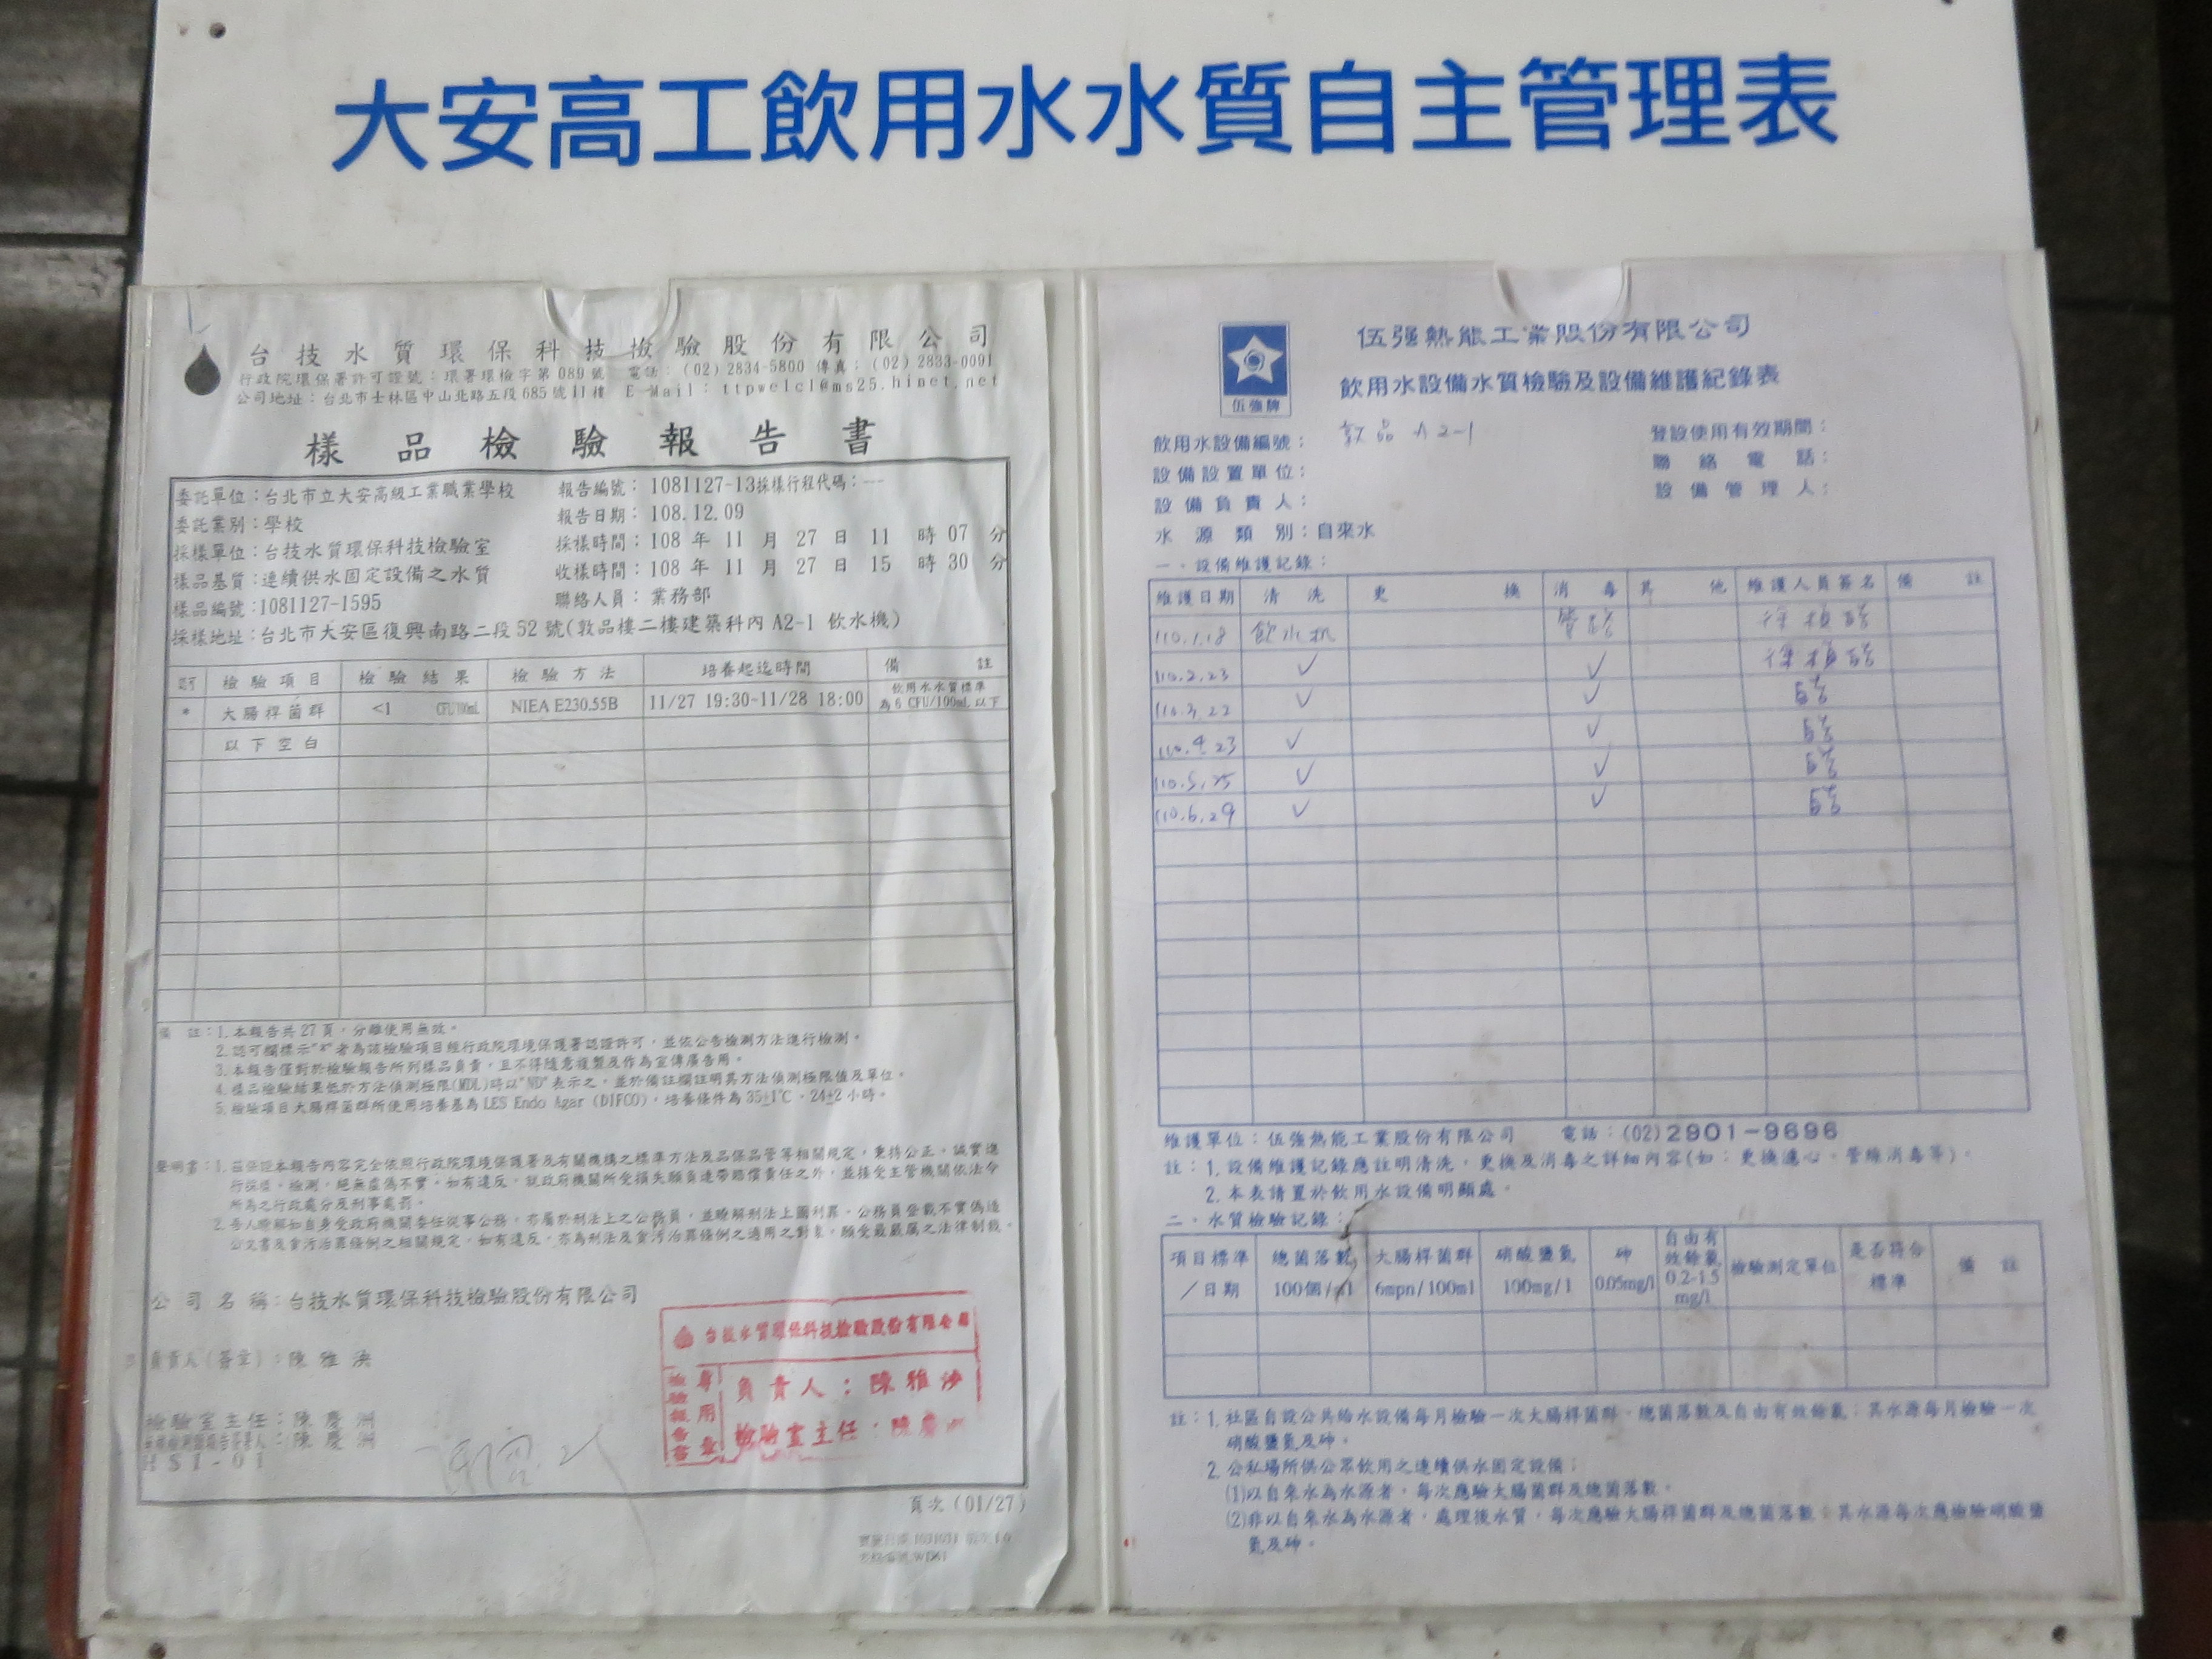 大安高工飲用水水質自主管理表
台技水質環保科技檢驗股份有限公司
行政院環保署許可證號：環署環檢字第089號 電話：(02)2834-5800 傳真：(02)2833-0091
公司地址：台北市士林區中山北路五段685號11樓 E-Mail：ttpwclcl@ms25.hinet.net
樣品檢驗報告書
委託單位：台北市立大安高級工業職業學校 報告編號：1081127-13採樣行程代碼：---
委託業別：學校 報告日期：108.12.09
採樣單位：台技水質環保科技檢驗室 採樣時間：108 年 11 月 27 日 11 時 07 分
樣品基質：連續供水固定設備之水質 收樣時間：108 年 11 月 27 日 15 時 30 分
樣品編號：1081127-1595 聯絡人員：業務部
採樣地址：台北市大安區復興南路二段52號(敦品樓二樓建築科內 A2-1 飲水機)
認可 檢驗項目 檢驗結果 檢驗方法 培養起迄時間 備註
* 大腸桿菌群 <1 CFU/100mL NIEA E230.55B 11/27 19:30~11/28 18:00 飲用水水質標準為6 CFU/100mL以下
以下空白
備 註：1.本報告共27頁，分離使用無效。
2.認可欄標示"*"者為該檢驗項目經行政院環境保護署認證許可，並依公告檢測方法進行檢測。
3.本報告僅對於檢驗報告所列樣品負責，且不得隨意複製及作為宣傳廣告用。
4.樣品檢驗結果低於方法偵測極限(MDL)時以"ND"表示之，並於備註欄註明其方法偵測極限值及單位。
5.檢驗項目大腸桿菌群所使用培養基為LES Endo Agar (DIFCO)，培養條件為35±1℃，24±2小時。
聲明書：1.茲保證本報告內容完全依照行政院環境保護署及有關機構之標準方法及品保品管等相關規定，秉持公正、誠實進
行採樣、檢測，絕無虛偽不實，如有違反，就政府機關所受損失願負連帶賠償責任之外，並接受主管機關依法令
所為之行政處分及刑事處罰。
2.吾人瞭解如自身受政府機關委任從事公務，亦屬於刑法上之公務員，並瞭解刑法上圖利罪、公務員登載不實偽造
公文書及貪污治罪條例之相關規定，如有違反，亦為刑法及貪污治罪條例之適用之對象，願受最嚴厲之法律制裁。
公司名稱：台技水質環保科技檢驗股份有限公司
負責人(簽章)：陳雅
檢驗室主任：陳慶洲
陳慶洲
HSI-01
台技水質環保科技檢驗股份有限公司
檢驗報告書專用章
負責人：陳雅
檢驗室主任：陳慶
頁次(01/27)
伍強牌
伍強熱能工業股份有限公司
飲用水設備水質檢驗及設備維護紀錄表
飲用水設備編號：敦品 A2-1 登設使用有效期間：
設備設置單位： 聯絡電話：
設備負責人： 設備管理人：
水源類別：自來水
一、設備維護記錄：
維護日期 清洗 更換 消毒 其他 維護人員簽名 備註
110.1.18 飲水机 管路
110.2.23 ✓ ✓
110.3.22 ✓ ✓
110.4.23 ✓ ✓
110.5.25 ✓ ✓
110.6.29 ✓ ✓
維護單位：伍強熱能工業股份有限公司 電話：(02)2901-9696
註：1.設備維護記錄應註明清洗，更換及消毒之詳細內容(如：更換濾心、管線消毒等)。
2.本表請置於飲用水設備明顯處。
二、水質檢驗記錄：
項目標準／日期 總菌落數 100個/ml 大腸桿菌群 6mpn/100ml 硝酸鹽氮 100mg/l 砷 0.05mg/l 自由有效餘氯 0.2-1.5 mg/l 檢驗測定單位 是否符合標準 備註
註：1.社區自設公共給水設備每月檢驗一次大腸桿菌群、總菌落數及自由有效餘氯；其水源每月檢驗一次
硝酸鹽氮及砷。
2.公私場所供公眾飲用之連續供水固定設備：
(1)以自來水為水源者，每次應驗大腸菌群及總菌落數。
(2)非以自來水為水源者，處理後水質，每次應驗大腸桿菌群及總菌落數；其水源每次應檢驗硝酸鹽
氮及砷。